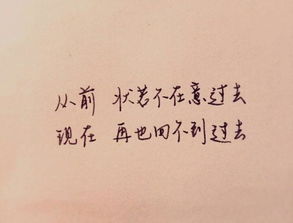 从前 状若不在意过去
现在 再也回不到过去